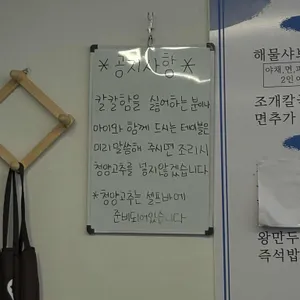 *공지사항*
칼칼함을 싫어하는 분이나
아이와 함께 드시는 테이블은
미리 말씀해 주시면 조리시
청양고추를 넣지않겠습니다
*청양고추는 셀프바에
준비되어있습니다
해물샤브
2인이
조개칼국
면추가
왕만두
즉석밥